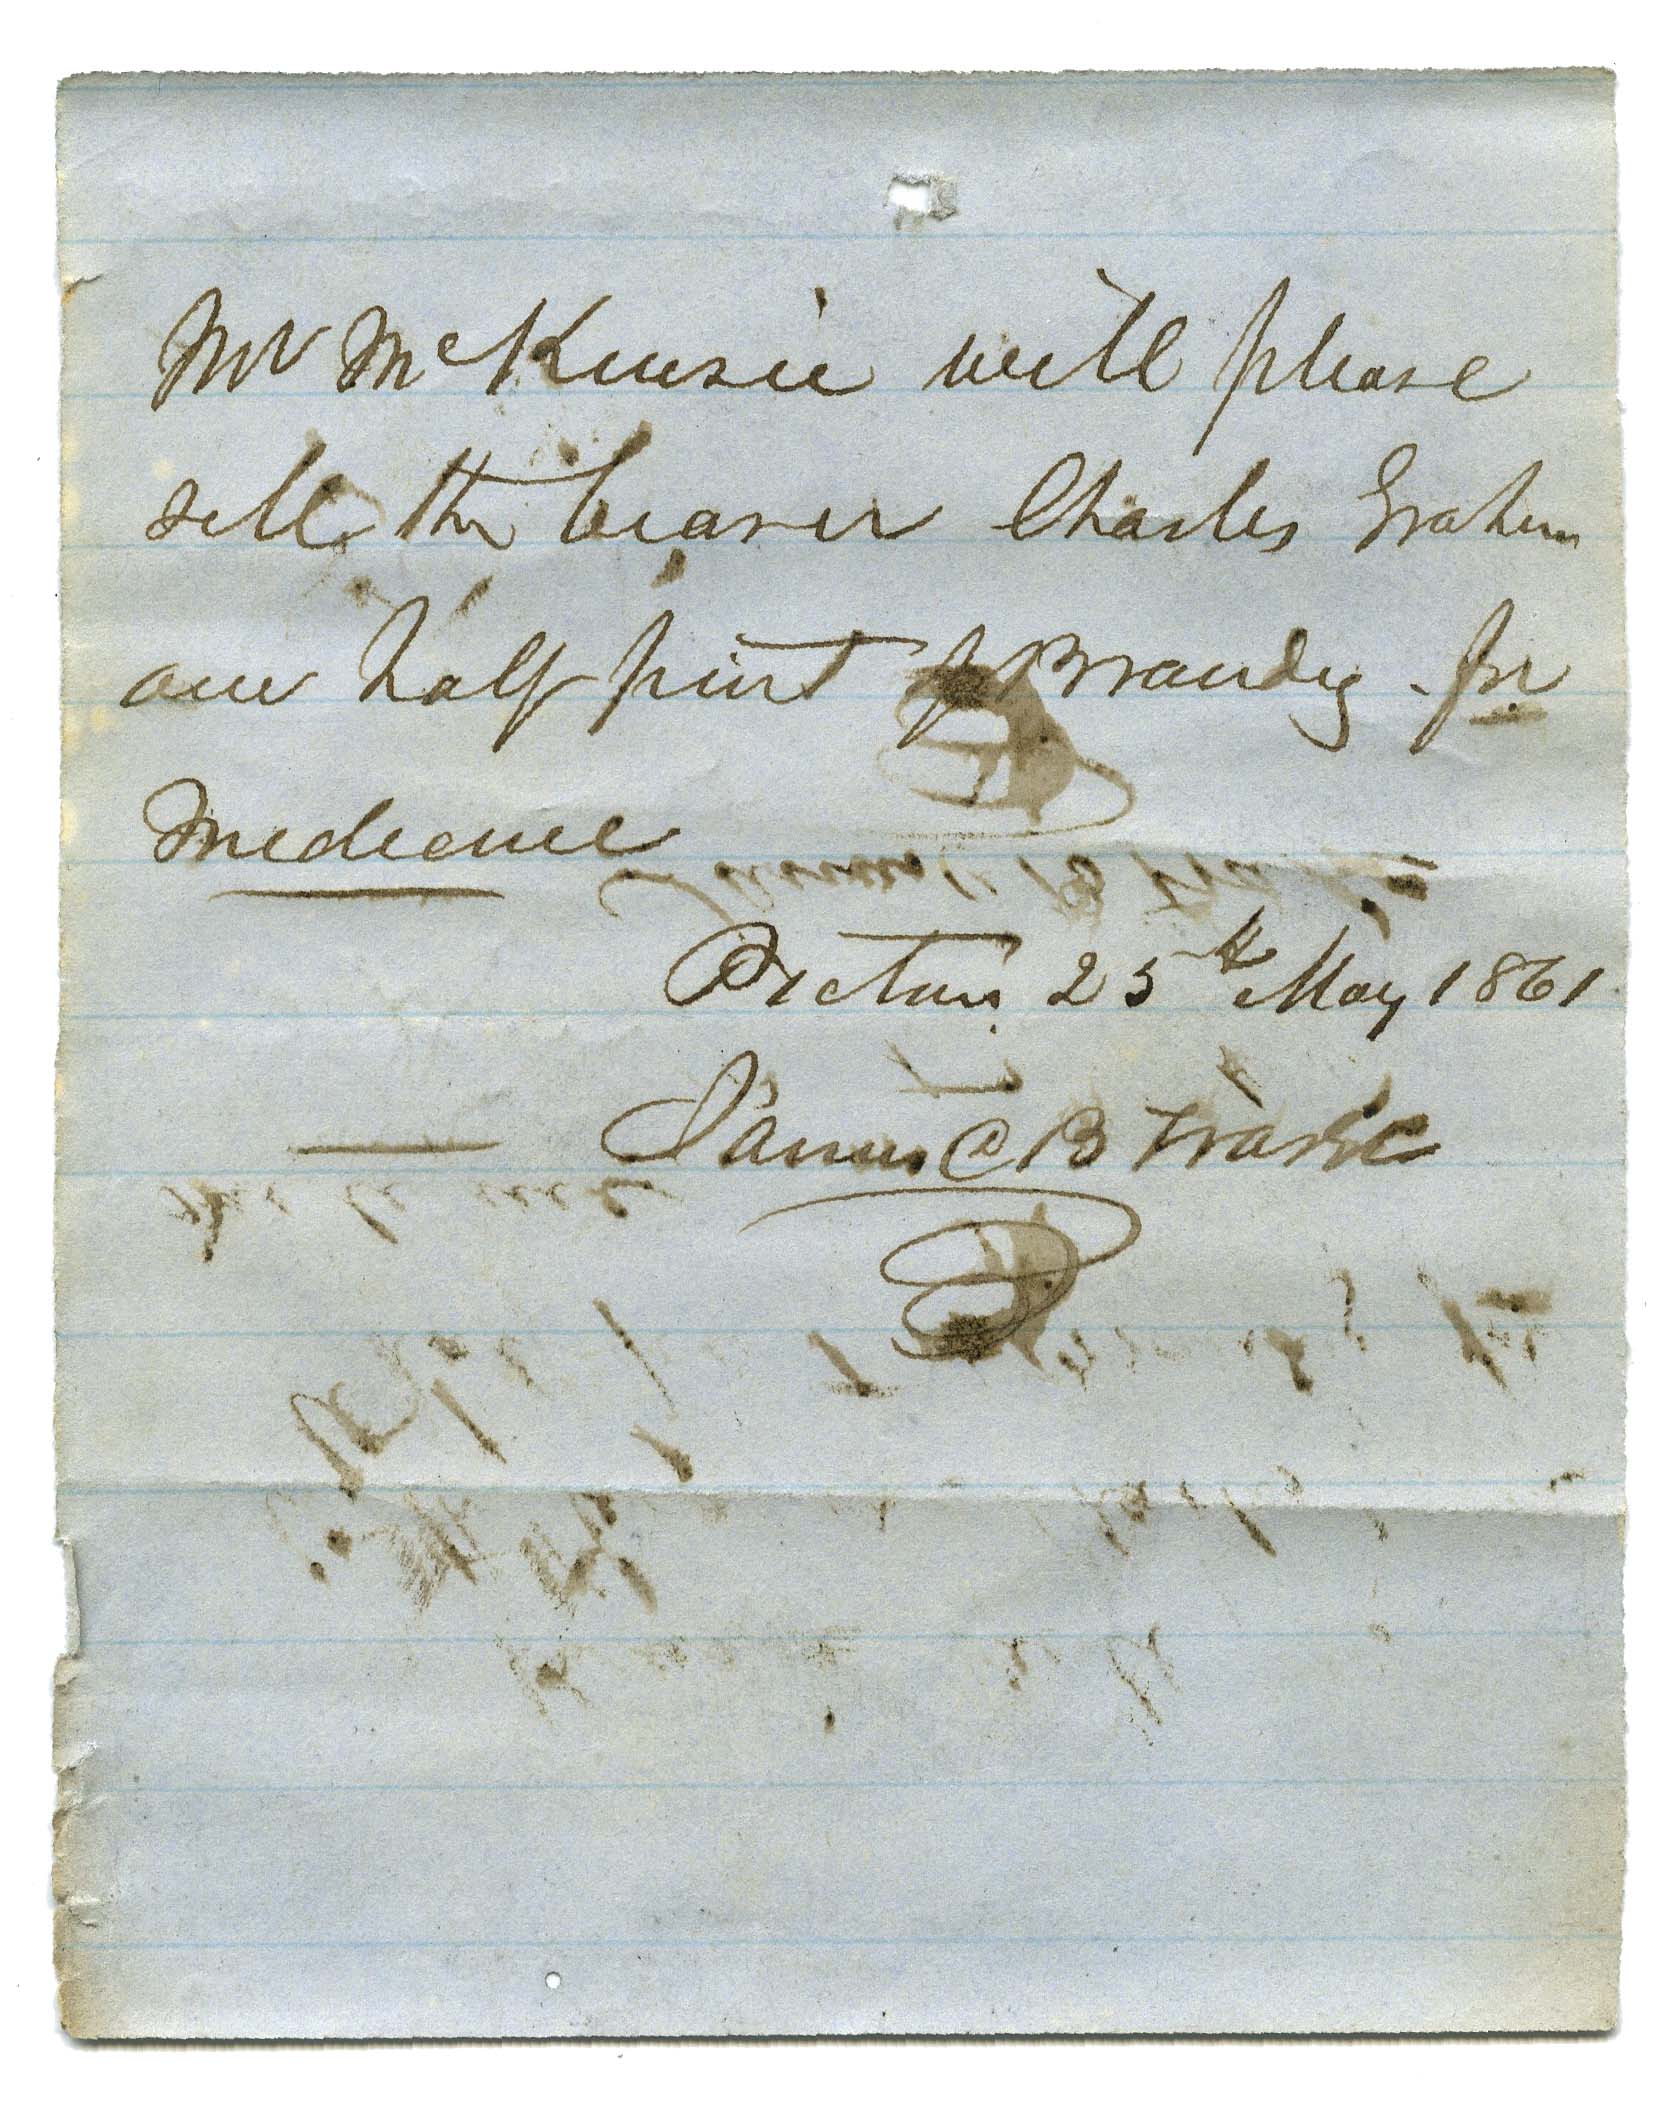 Mr McKinsie will please
sell the bearer Charles Graham
one half pint of Brandy for
Medicine
Pictou 25th May 1861
James @ B Fraser